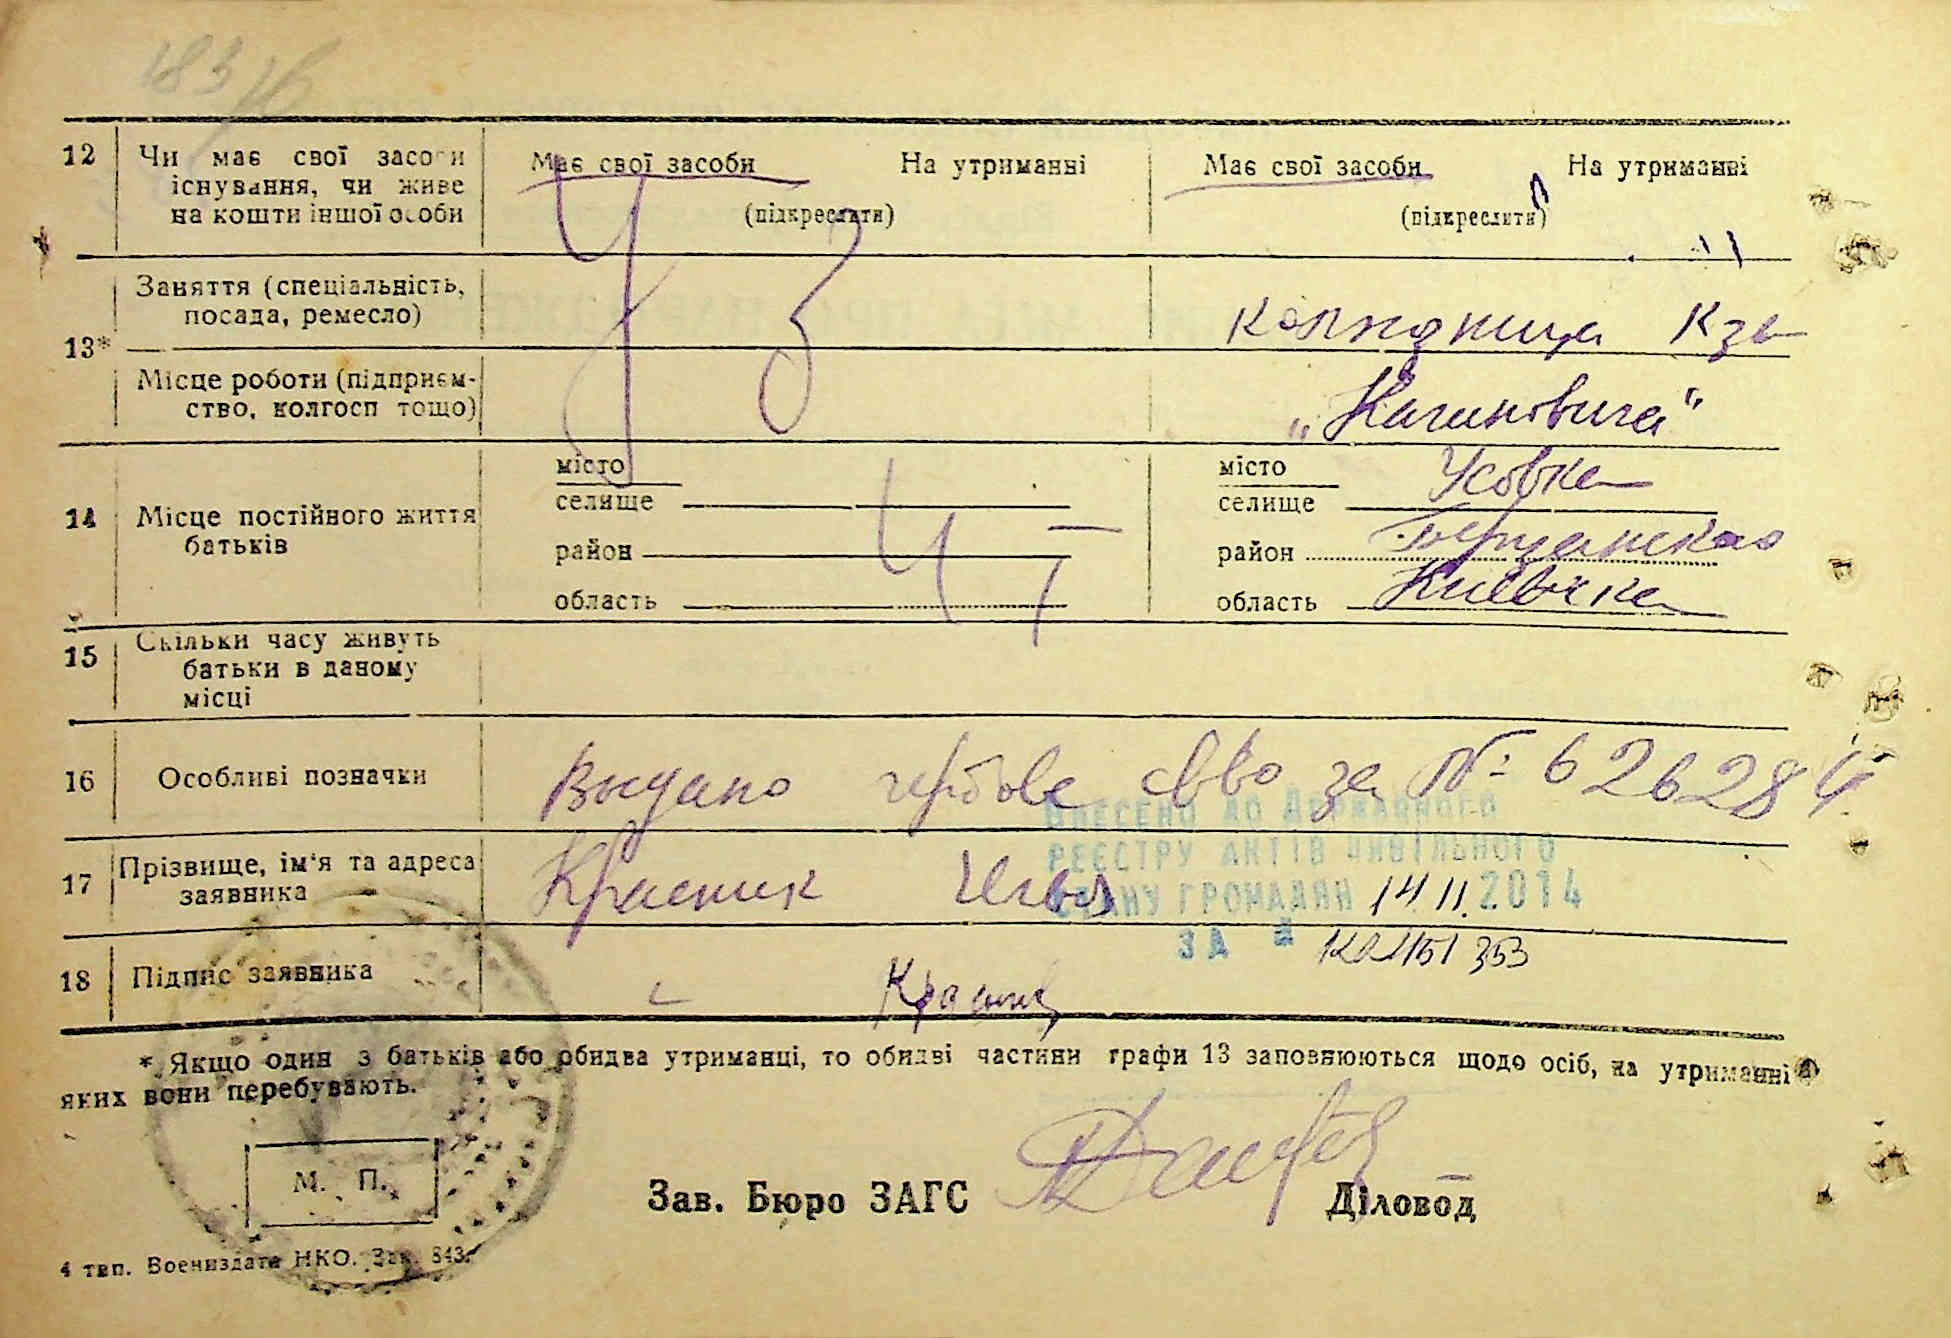 183
12 Чи має свої засоби Має свої засоби На утриманні Має свої засоби На утриманні
існування, чи живе
на кошти іншої особи (підкреслити) (підкреслити)
Заняття (спеціальність,
посада, ремесло) колхозниця
13*
Місце роботи (підприєм-
ство, колгосп тощо) „Кагановича"
місто місто Усовка
селище селище
14 Місце постійного життя
батьків
район район
область область Київска
15 Скільки часу живуть
батьки в даному
місці
16 Особливі позначки Выдано гербове св-во за № 626284
ВНЕСЕНО ДО ДЕРЖАВНОГО
РЕЄСТРУ АКТІВ ЦИВІЛЬНОГО
17 Прізвище, ім'я та адреса
заявника Красник
СТАНУ ГРОМАДЯН 14.11.2014
ЗА №
18 Підпис заявника
* Якщо один з батьків або обидва утриманці, то обидві частини графи 13 заповнюються щодо осіб, на утриманні
яких вони перебувають.
М. П.
Зав. Бюро ЗАГС Діловод
4 тип. Воениздата НКО. Зак. 843.